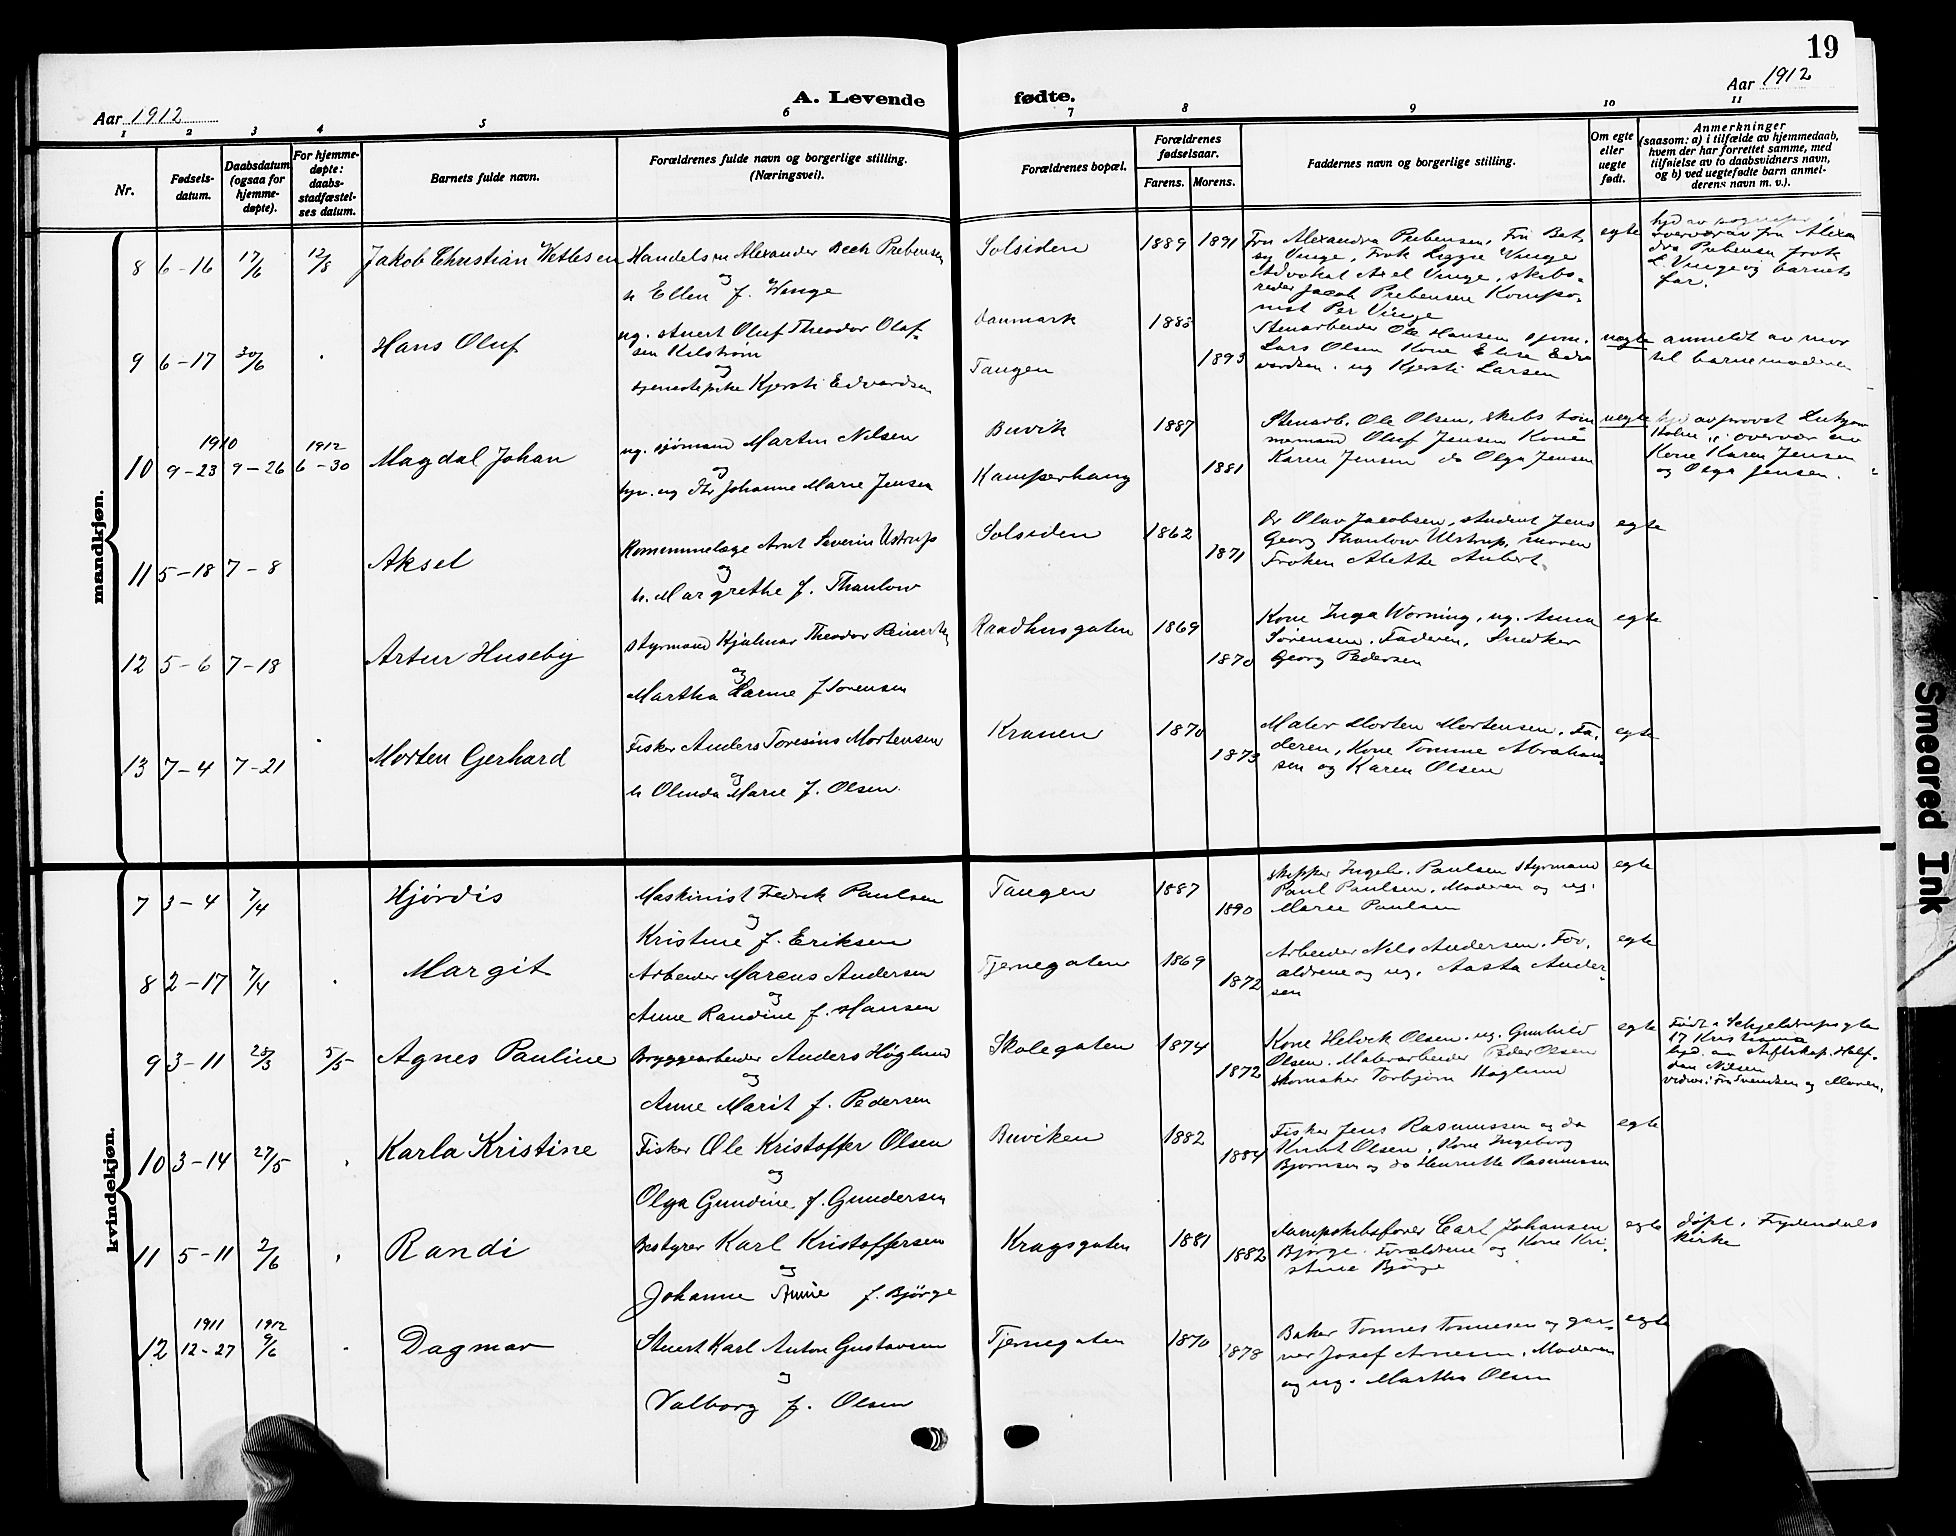 19
Aar 1912
A. Levende
fødte.
Aar 1912
1 2 3 4 5 6 7 8 9 10 11
Nr.
Fødsels-
datum.
Daabsdatum
(ogsaa for
hjemme-
døpte).
For hjemme-
døpte:
daabs-
stadfæstel-
ses datum.
Barnets fulde navn.
Forældrenes fulde navn og borgerlige stilling.
(Næringsvei).
Forældrenes bopæl.
Forældrenes
fødselsaar.
Farens. Morens.
Faddernes navn og borgerlige stilling.
Om egte
eller
uegte
født.
Anmerkninger
(saasom: a) i tilfælde av hjemmedaab,
hvem der har forrettet samme, med
tilføielse av to daabsvidners navn,
og b) ved uegtefødte barn anmel-
derens navn m. v.).
mandkjøn.
8 6-16 17/6 12/8 Jakob Christian Wetlesen
Handelsm Alexander Beck Prebensen
og
h Ellen f. Winge
Solsiden 1889 1891
Fru Alexandra Prebensen, Fru Bet-
sy Vinge, Frøk Liggie Vinge
Advokat Axel Vinge, skibs-
reder Jacob Prebensen Kompo-
nist Per Vinge
egte
hjd av sogneprest i
overvær av fru Alexan
dra Prebensen frøk
L. Vinge og barnets
far.
9 6-17 30/6 Hans Oluf
ug. stuert Oluf Theodor Olaf-
sen Kilstrøm
og
tjenestepike Kjersti Edvardsen
Danmark
Tangen
1883 1893
Stenarbeider Ole Hansen sjøm.
Lars Olsen Kone Elise Ed
vardsen. ug Kjersti Larsen
uegte
anmeldt av mor
til barnemoderen
10 1910 9-23 9-26 1912 6-30 Magdal Johan
ug. sjømand Martin Nilsen
og
ug Johanne Marie Jensen
Buvik
Kamperhaug
1887 1881
Stenarb. Ole Olsen, skibs tøm
mermand Oluf Jensen Kone
Karen Jensen do Olga Jensen
uegte
hjd av provst
Holm i overvær av
Kone Karen Jensen
og Olga Jensen.
11 5-18 7-8 Aksel
Arnt Severin Ustrup
og
h. Margrethe f. Thaulow
Solsiden 1862 1871
Dr Olav Jacobsen, student Jens
Georg Thaulow Ulstrup, moren
Frøken Alette Aubert.
egte
12 5-6 7-18 Artur Huseby
Styrmand Hjalmar Theodor
og
Martha f Sørensen
Raadhusgaten 1869 1870
Kone Inga Worning, ug. Anna
Sørensen, Faderen, Snedker
Georg Pedersen
egte
13 7-4 7-21 Morten Gerhard
Fisker Anders Toresius Mortensen
og
h Olinda Marie f. Olsen
Kranen 1870 1873
Maler Morten Mortensen, Fa-
deren, Kone Tomine Abraham
sen og Karen Olsen
egte
kvindekjøn.
7 3-4 7/4 Hjørdis
Maskinist Fredrik Paulsen
og
Kristine f. Eriksen
Tangen 1887 1890
skipper Ingebr. Paulsen Styrmand
Paul Paulsen, Moderen og ug.
Marie Paulsen
egte
8 2-17 7/4 Margit
Arbeider Marcus Andersen
og
Anne Randine f. Hansen
Tjernegaten 1869 1872
Arbeider Nils Andersen. For-
ældrene og ug. Aasta Ander-
sen
egte
9 3-11 28/3 5/5 Agnes Pauline
Bryggearbeider Anders Høglund
og
Anne Marit f. Pedersen
Skolegaten 1874 1872
Kone Helvik Olsen. ug. Gunhild
Olsen. Malerarbeider Peder Olsen
skomaker Torbjørn Høglund
egte
Født i Schjeldrupsgten
17 Kristiania
hjd. av stiftskap. Half-
dan Nilsen
vidner: Fru Svendsen og Moren.
10 3-14 27/5 Karla Kristine
Fisker Ole Kristoffer Olsen
og
Olga Gundine f. Gundersen
Buviken 1882 1884
Fisker Jens Rasmussen og do
Knut Olsen, Kone Ingeborg
Bjørnsen og do Henriette Rasmussen
egte
11 5-11 2/6 Randi
Bestyrer Karl Kristoffersen
og
Johanne Amie f. Bjørge
Kragsgaten 1881 1882
Dampskibsfører Carl Johansen
Bjørge. Forældrene og Kone Kri-
stine Bjørge
egte
døpt i Frydendals
Kirke
12 1911 12-27 1912 9/6 Dagmar
Stuert Karl Anton Gustavsen
og
Valborg f. Olsen
Tjernegaten 1870 1878
Baker Tønnes Tønnesen og gar-
ver Josef Arnesen, Moderen
og ug. Martha Olsen
egte
Smeared Ink